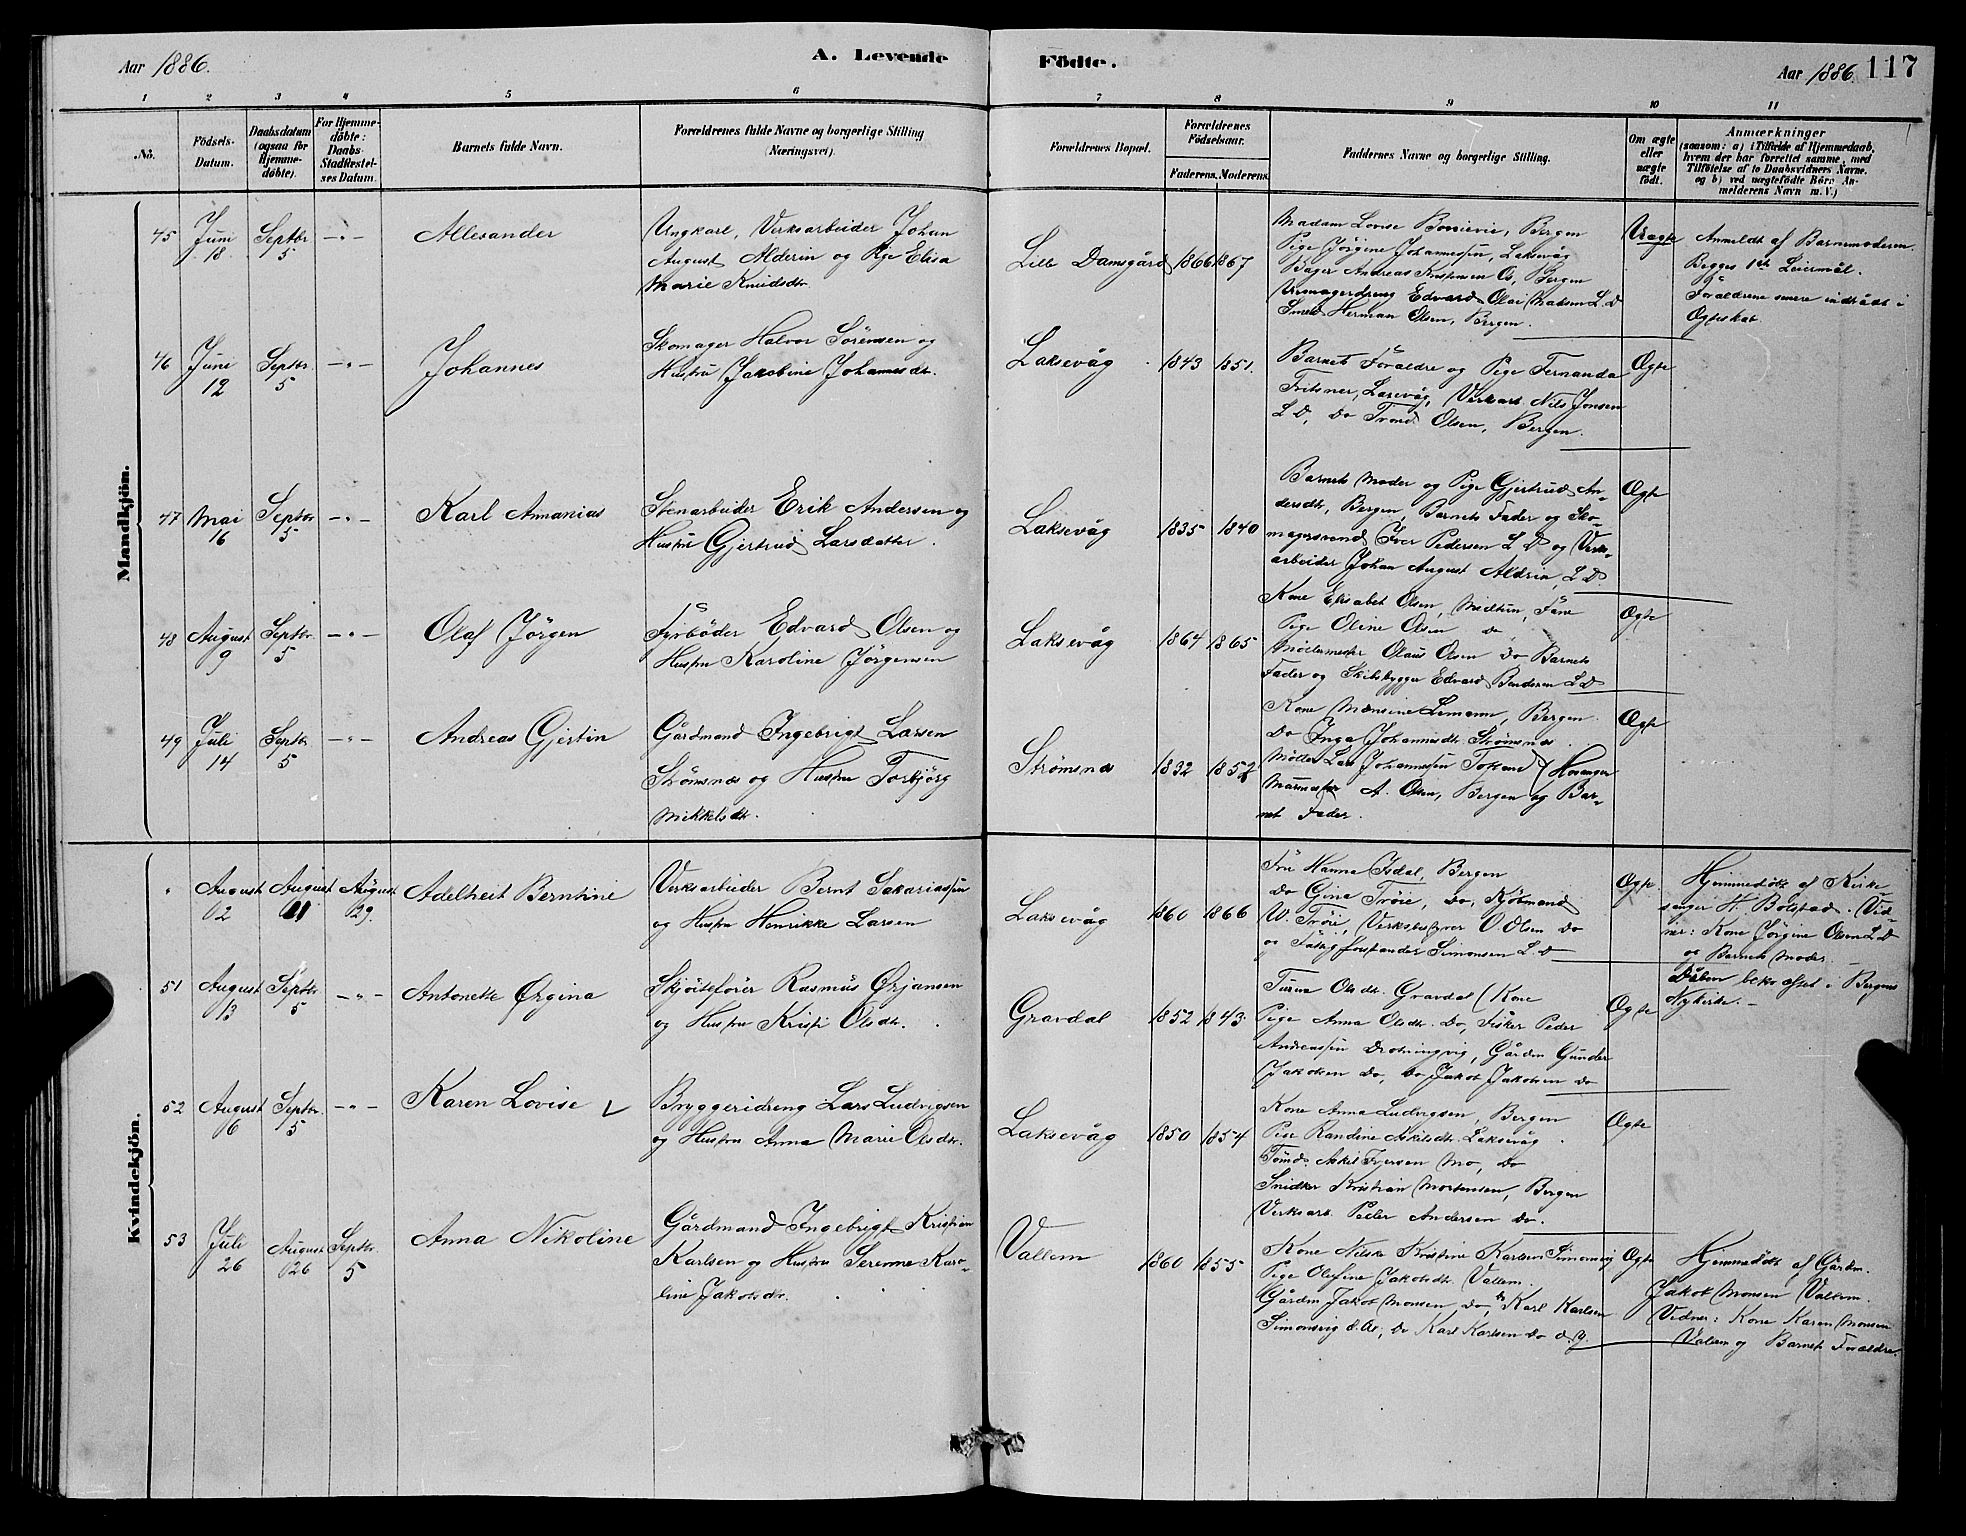 Aar 1886.
A. Levende
Födte.
Aar 1886.
117
1
2
3
4
5
6
7
8
9
10
11
No.
Födsels-
Datum.
Daabsdatum
(ogsaa for
Hjemme-
döbte).
For Hjemme-
döbte:
Daabs-
Stadfæstel-
ses Datum.
Barnets fulde Navn.
Forældrenes fulde Navne og borgerlige Stilling
(Næringsvei).
Forældrenes Bopæl.
Forældrenes
Födselsaar.
Faderens. Moderens.
Faddernes Navne og borgerlige Stilling.
Om ægte
eller
uægte
födt.
Anmærkninger
(saasom: a) i Tilfælde af Hjemmedaab,
hvem der har forrettet samme, med
Tilföielse af to Daabsvidners Navne.
og b) ved uægtefödte Börn An-
melderens Navn m. V.)
Mandkjön.
45
Juni
18
Septbr
5
-"-
Allexander
Ungkarl, Verksarbeider Johan
August Alderin og Pige Elisa
Marie Knudsdtr.
Lille Damsgård
1866
1867
Madam Lovise Bergen
Pige Jörgine Johannessen, Laksevåg
Bager Andreas Kristensen Os, Bergen
Urmagerdreng Edvard Olai Madsen L. D
Smed Herman Olsen, Bergen.
Uægte
Anmeldt af Barnemoderen.
Begges 1ste Leiermål.
Forældrene senere indtrådt i
Ægteskab.
46
Juni
12
Septbr.
5
-"-
Johannes
Skomager Halvor Sörensen og
Hustru Jakobine Johannesdtr.
Laksevåg
1843
1851.
Barnets Foraldre og Pige Fernanda
Laxevåg, Verksarb. Nils Jonsen
L D, Do Trond Olsen, Bergen.
Ægte
47
Mai
16
Septbr
5
-"-
Karl Annanias
Stenarbeider Erik Andersen og
Hustru Gjertrud Larsdatter.
Laksevåg
1835
1840
Barnets Moder og Pige Gjertrud An-
dersdtr, Bergen, Barnets Fader og Sko-
magersvend Iver Pedersen L. D og Verks-
arbeider Johan August Aldrin, L D.
Ægte
48
August
9
Septbr
5
-"-
Olaf Jörgen
Fyrböder Edvard Olsen og
Hustru Karoline Jörgensen
Laksevåg
1864
1865
Kone Elisabet Olsen, Midtun, Fane
Pige Oline Olsen Do
Möllemester Olaus Olsen Do Barnets
Fader og Skibsbygger Edvard L D
Ægte
49
Juli
14
Septbr
5
-"-
Andreas Gjertin
Gårdmand Ingebrigt Larsen
Strömsnæs og Hustru Torbjörg
Mikkelsdtr.
Strömsnæs
1832
1852
Kone Monsine Lemann, Bergen.
Do Inga Johannesdtr. Strömsnæs.
Möller Lars Johannessen Hosanger
Murmester A. Olsen, Bergen og Bar-
net Fader.
Ægte
Kvindekjön.
"
August
02
August
01
August
29.
Adelheit Berntine
Verksarbeider Bernt Sakariassen
og Hustru Henrikke Larsen
Laksevåg
1860
1866
Fru Hanna Isdal, Bergen
Do Gina Tröie, Do, Kjöbmand
W. Tröie, Verksbestyrer O. Olsen Do
og Simonsen L. D
Ægte.
Hjemmedöbt af Kirke
sanger H. Bolstad. Vid-
ner: Kone Jörgine Olsen L D
og Barnets Moder.
51
August
13
Septbr
5
-"-
Antonette Ørgina
Skjöitefører Rasmus Ørjansen
og Hustru Kristi Olsdtr.
Gravdal
1852
1843.
Olsdtr. Gravdal (Kone
Pige Anna Olsdtr. Do, Fisker Peder
Andreassen Drotningvig, Gårdm Gunder
Jakobsen Do, Do Jakob Jakobsen Do
Ægte
Dåben bekræftet i Bergens
Nykirke.
52
August
6
Septbr.
5
-"-
Karen Lovise
Bryggeridreng Lars Ludvigsen
og Hustru Anna Marie Olsdtr.
Laksevåg
1850
1854
Kone Anna Ludvigsen, Bergen
Pige Randine Askilsdtr. Laksevåg
Tömd. Askil Iversen Mo, Do
Snidker Kristian Mortensen, Bergen
Verksarb. Peder Andersen Do.
Ægte
53
Juli
26
August
026
Septbr.
5
Anna Nikoline
Gårdmand Ingebrigt Kristian
Karlsen og Hustru Serenne Karo-
line Jakobsdtr.
Vallem
1860
1855
Kone Nilsa Kristine Karlsen Simonsvig
Pige Olefine Jakobsdtr. Vallem.
Gårdm Jakob Monsen, Do, Karl Karlsen
Simonsvig d. Æ., Do Karl Karlsen Do d. y.
Ægte
Hjemmedöbt af Gårdm.
Jakob Monsen Vallem.
Vidner: Kone Karen Monsen
Vallem og Barnets Forældre.